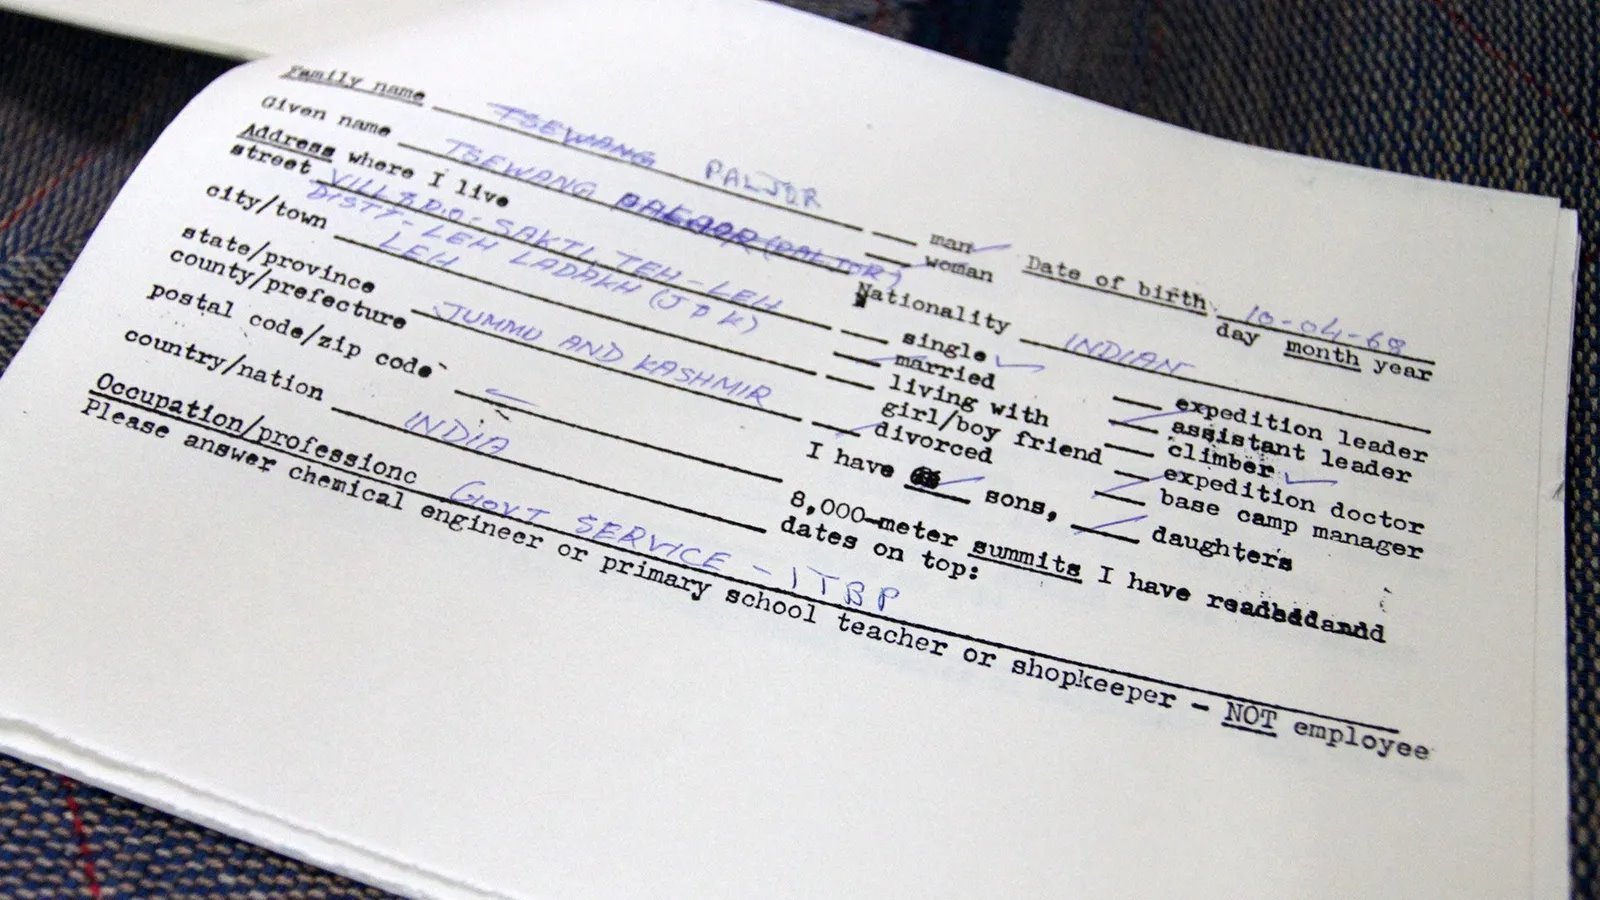 Family name TSEWANG PALJOR
Given name TSEWANG PALJOR (PALJOR)
Address where I live
street VILL & P.O- SAKTI, TEH-LEH
DISTT-LEH LADAKH (J & K)
city/town LEH
state/province
county/prefecture JUMMU AND KASHMIR
postal code/zip code
country/nation INDIA
Occupation/professionc GOVT SERVICE - ITBP
Please answer chemical engineer or primary school teacher or shopkeeper - NOT employee
man
woman
Date of birth 10-04-68
day month year
Nationality INDIAN
single
married
living with
girl/boy friend
divorced
I have sons, daughters
expedition leader
assistant leader
climber
expedition doctor
base camp manager
8,000-meter summits I have
dates on top: